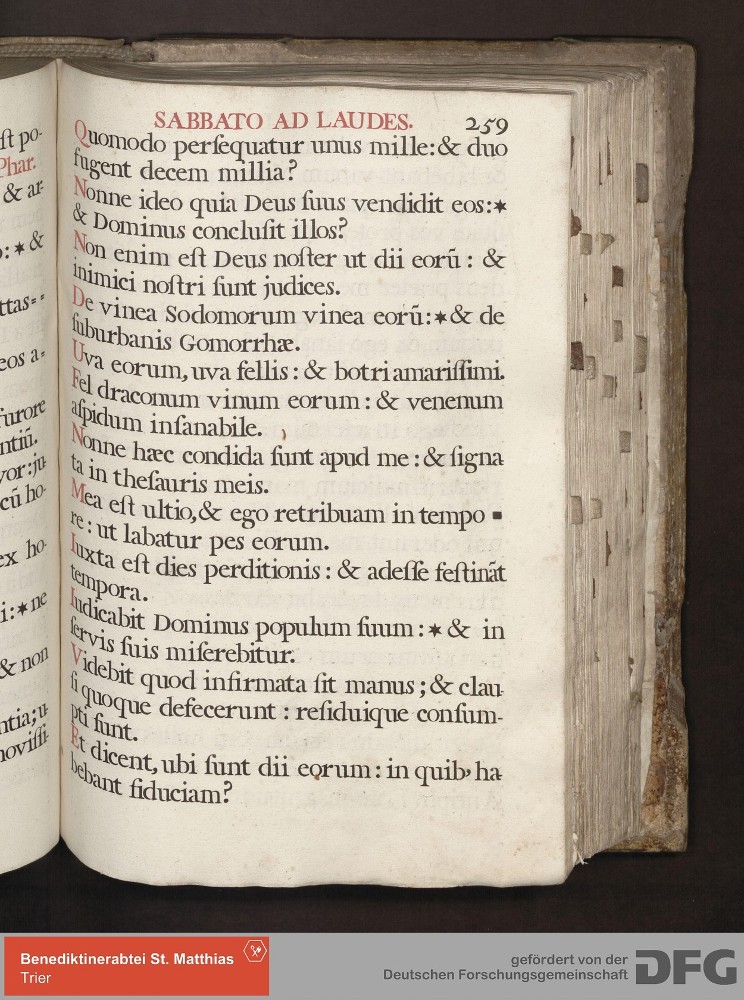 ſt po-
Phar.
& ar-
o: * &
ttas=
eos a=
furore
ntiū.
vor: ju
cū ho-
ex ho-
i: * ne
& non
ntia; u-
noviſſi-
SABBATO AD LAUDES. 259
Quomodo perſequatur unus mille: & duo
fugent decem millia?
Nonne ideo quia Deus ſuus vendidit eos: *
& Dominus concluſit illos?
Non enim eſt Deus noſter ut dii eorū : &
inimici noſtri ſunt judices.
De vinea Sodomorum vinea eorū: * & de
ſuburbanis Gomorrhæ.
Uva eorum, uva fellis : & botri amariſſimi.
Fel draconum vinum eorum : & venenum
aſpidum inſanabile.
Nonne hæc condida ſunt apud me : & ſigna
ta in theſauris meis.
Mea eſt ultio, & ego retribuam in tempo -
re : ut labatur pes eorum.
Iuxta eſt dies perditionis : & adeſſe feſtinãt
tempora.
Iudicabit Dominus populum ſuum : * & in
ſervis ſuis miſerebitur.
Videbit quod infirmata ſit manus ; & clau-
ſi quoque defecerunt : reſiduique conſum-
pti ſunt.
Et dicent, ubi ſunt dii eorum : in quib, ha
bebant fiduciam?
Benediktinerabtei St. Matthias
Trier
gefördert von der
Deutschen Forschungsgemeinschaft
DFG